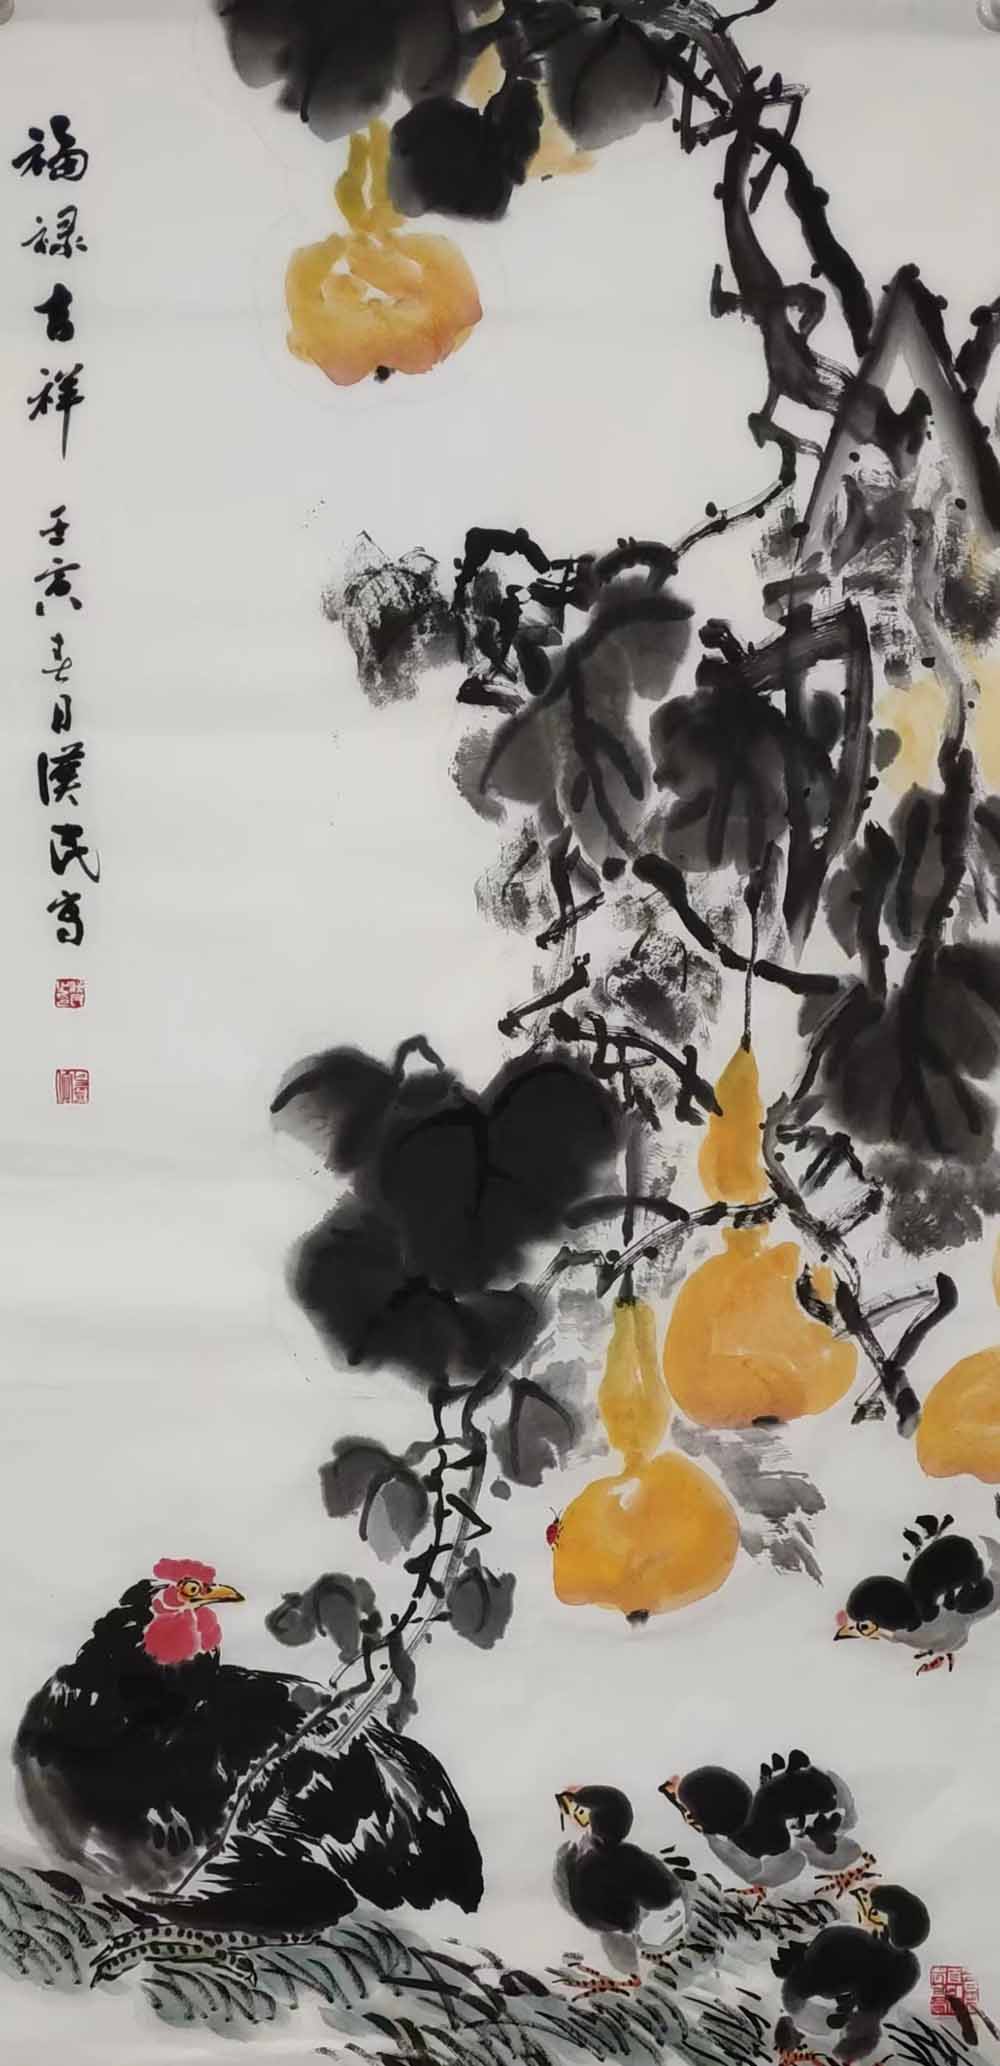 福禄吉祥 壬寅春日漢民写